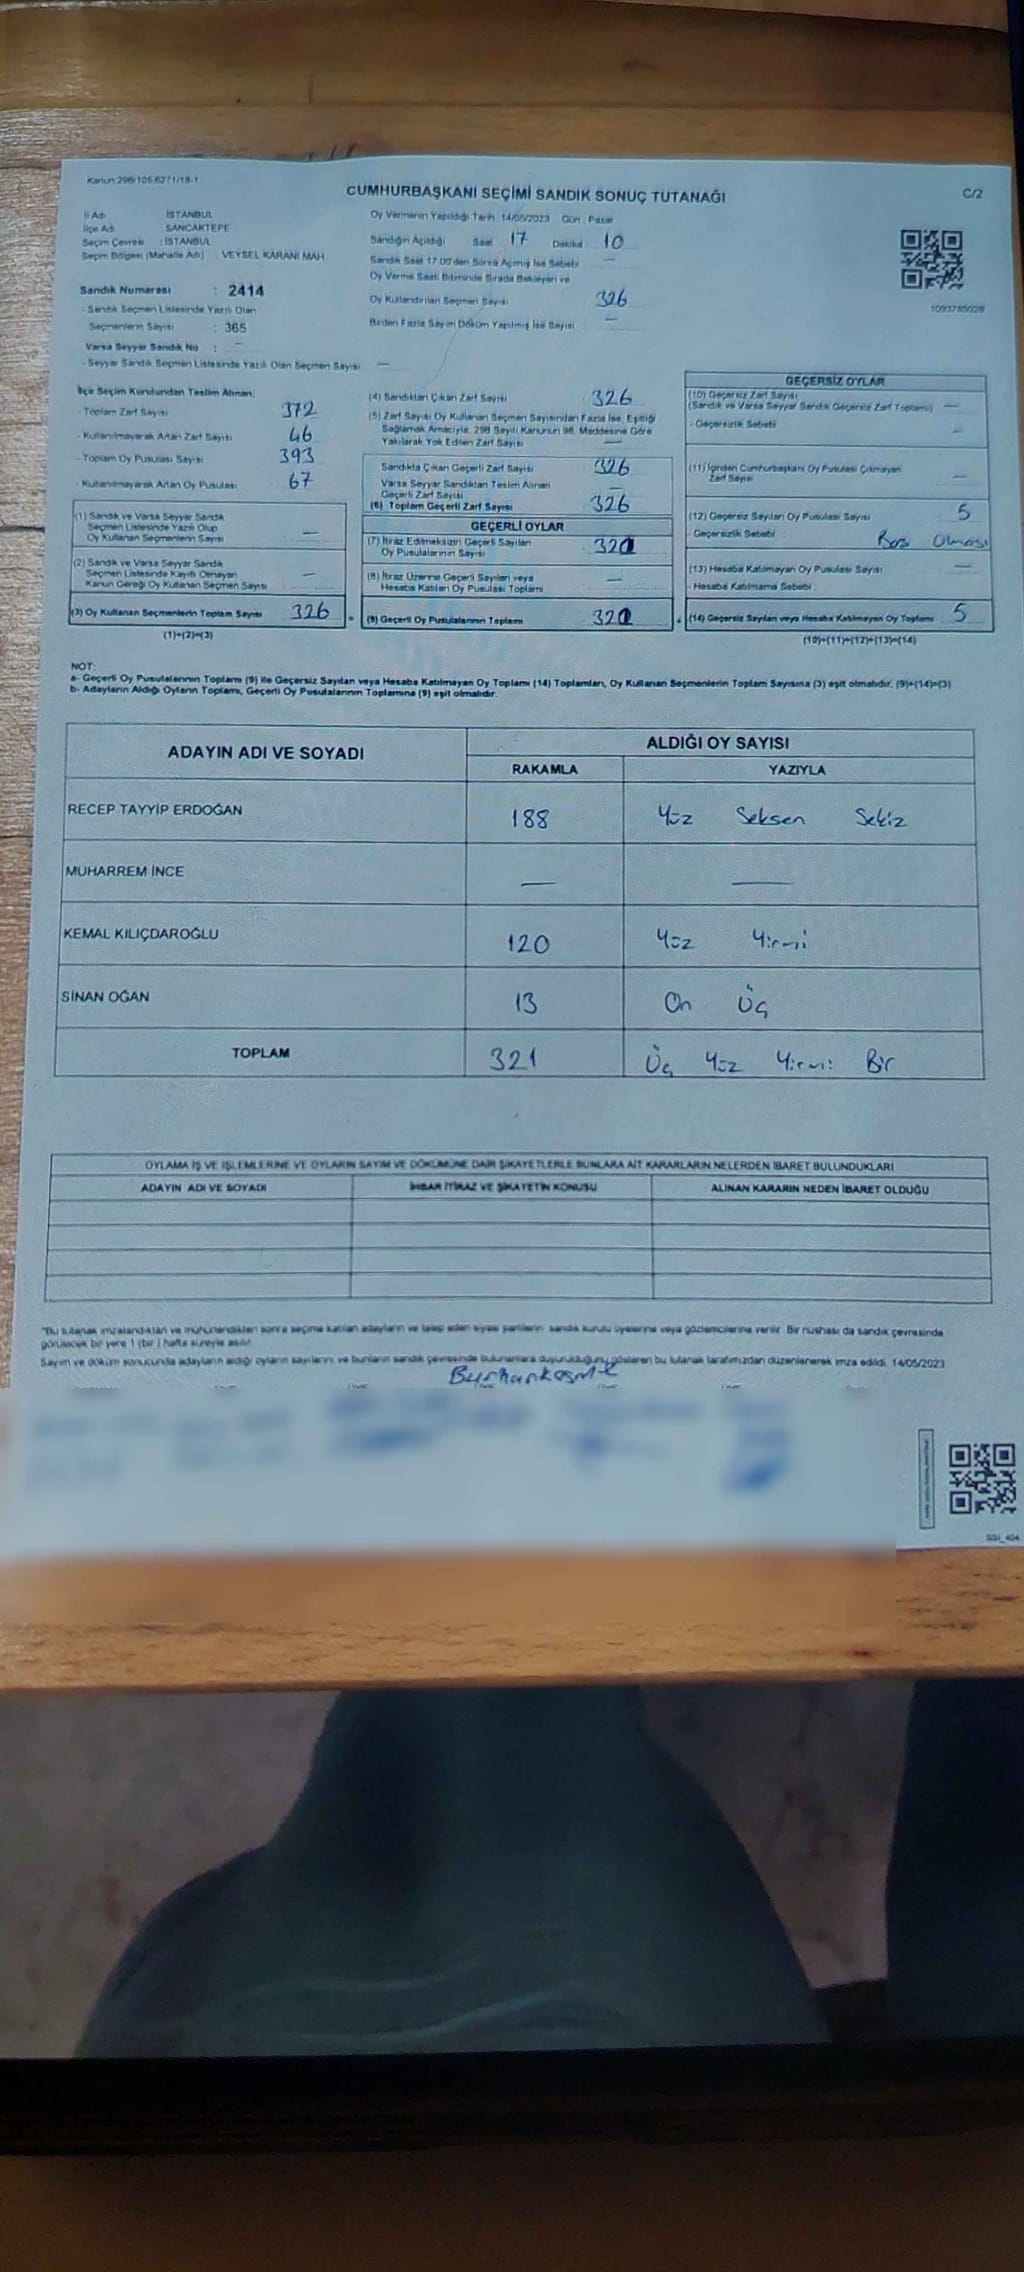 Kanun 298/105.6271/18-1
CUMHURBAŞKANI SEÇİMİ SANDIK SONUÇ TUTANAĞI
C/2
İl Adı : İSTANBUL
İlçe Adı : SANCAKTEPE
Seçim Çevresi : İSTANBUL
Seçim Bölgesi (Mahalle Adı) : VEYSEL KARANİ MAH
Sandık Numarası : 2414
- Sandık Seçmen Listesinde Yazılı Olan
Seçmenlerin Sayısı : 365
Varsa Seyyar Sandık No : —
- Seyyar Sandık Seçmen Listesinde Yazılı Olan Seçmen Sayısı —
Oy Vermenin Yapıldığı Tarih : 14/05/2023 Gün : Pazar
Sandığın Açıldığı Saat 17 Dakika 10
Sandık Saat 17.00'den Sonra Açılmış İse Sebebi —
Oy Verme Saati Bitiminde Sırada Bekleyen ve
Oy Kullandırılan Seçmen Sayısı 326
Birden Fazla Sayım Döküm Yapılmış İse Sayısı —
1093785028
İlçe Seçim Kurulundan Teslim Alınan;
- Toplam Zarf Sayısı 372
- Kullanılmayarak Artan Zarf Sayısı 46
- Toplam Oy Pusulası Sayısı 393
- Kullanılmayarak Artan Oy Pusulası 67
(1) Sandık ve Varsa Seyyar Sandık
Seçmen Listesinde Yazılı Olup
Oy Kullanan Seçmenlerin Sayısı —
(2) Sandık ve Varsa Seyyar Sandık
Seçmen Listesinde Kayıtlı Olmayan
Kanun Gereği Oy Kullanan Seçmen Sayısı —
(3) Oy Kullanan Seçmenlerin Toplam Sayısı 326
(1)+(2)=(3)
(4) Sandıktan Çıkan Zarf Sayısı 326
(5) Zarf Sayısı Oy Kullanan Seçmen Sayısından Fazla İse, Eşitliği
Sağlamak Amacıyla, 298 Sayılı Kanunun 98. Maddesine Göre
Yakılarak Yok Edilen Zarf Sayısı —
Sandıkta Çıkan Geçerli Zarf Sayısı 326
Varsa Seyyar Sandıktan Teslim Alınan
Geçerli Zarf Sayısı —
(6) Toplam Geçerli Zarf Sayısı 326
GEÇERLİ OYLAR
(7) İtiraz Edilmeksizin Geçerli Sayılan
Oy Pusulalarının Sayısı 321
(8) İtiraz Üzerine Geçerli Sayılan veya
Hesaba Katılan Oy Pusulası Toplamı —
(9) Geçerli Oy Pusulalarının Toplamı 321
GEÇERSİZ OYLAR
(10) Geçersiz Zarf Sayısı
(Sandık ve Varsa Seyyar Sandık Geçersiz Zarf Toplamı) —
- Geçersizlik Sebebi : —
(11) İçinden Cumhurbaşkanı Oy Pusulası Çıkmayan
Zarf Sayısı —
(12) Geçersiz Sayılan Oy Pusulası Sayısı 5
- Geçersizlik Sebebi : Boş Olması
(13) Hesaba Katılmayan Oy Pusulası Sayısı —
- Hesaba Katılmama Sebebi :
(14) Geçersiz Sayılan veya Hesaba Katılmayan Oy Toplamı 5
(10)+(11)+(12)+(13)=(14)
NOT:
a- Geçerli Oy Pusulalarının Toplamı (9) ile Geçersiz Sayılan veya Hesaba Katılmayan Oy Toplamı (14) Toplamları, Oy Kullanan Seçmenlerin Toplam Sayısına (3) eşit olmalıdır. (9)+(14)=(3)
b- Adayların Aldığı Oyların Toplamı, Geçerli Oy Pusulalarının Toplamına (9) eşit olmalıdır.
ADAYIN ADI VE SOYADI
ALDIĞI OY SAYISI
RAKAMLA YAZIYLA
RECEP TAYYİP ERDOĞAN 188 Yüz Seksen Sekiz
MUHARREM İNCE — —
KEMAL KILIÇDAROĞLU 120 Yüz Yirmi
SİNAN OĞAN 13 On Üç
TOPLAM 321 Üç Yüz Yirmi Bir
OYLAMA İŞ VE İŞLEMLERİNE VE OYLARIN SAYIM VE DÖKÜMÜNE DAİR ŞİKAYETLERLE BUNLARA AİT KARARLARIN NELERDEN İBARET BULUNDUKLARI
ADAYIN ADI VE SOYADI İHBAR İTİRAZ VE ŞİKAYETİN KONUSU ALINAN KARARIN NEDEN İBARET OLDUĞU
"Bu tutanak imzalandıktan ve mühürlendikten sonra seçime katılan adayların ve talep eden siyasi partilerin sandık kurulu üyelerine veya gözlemcilerine verilir. Bir nüshası da sandık çevresinde
görülecek bir yere 1 (bir) hafta süreyle asılır.
Sayım ve döküm sonucunda adayların aldığı oyların sayılarını ve bunların sandık çevresinde bulunanlara duyurulduğunu gösteren bu tutanak tarafımızdan düzenlenerek imza edildi. 14/05/2023